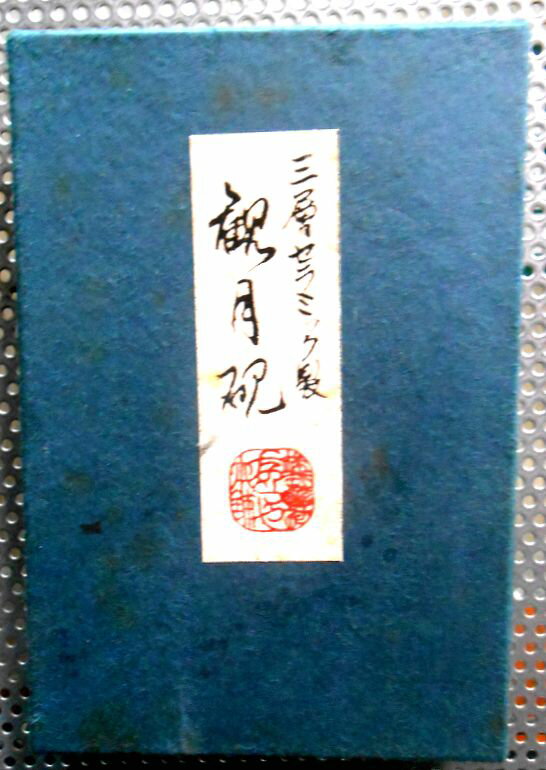 三層セラミック製
観月硯